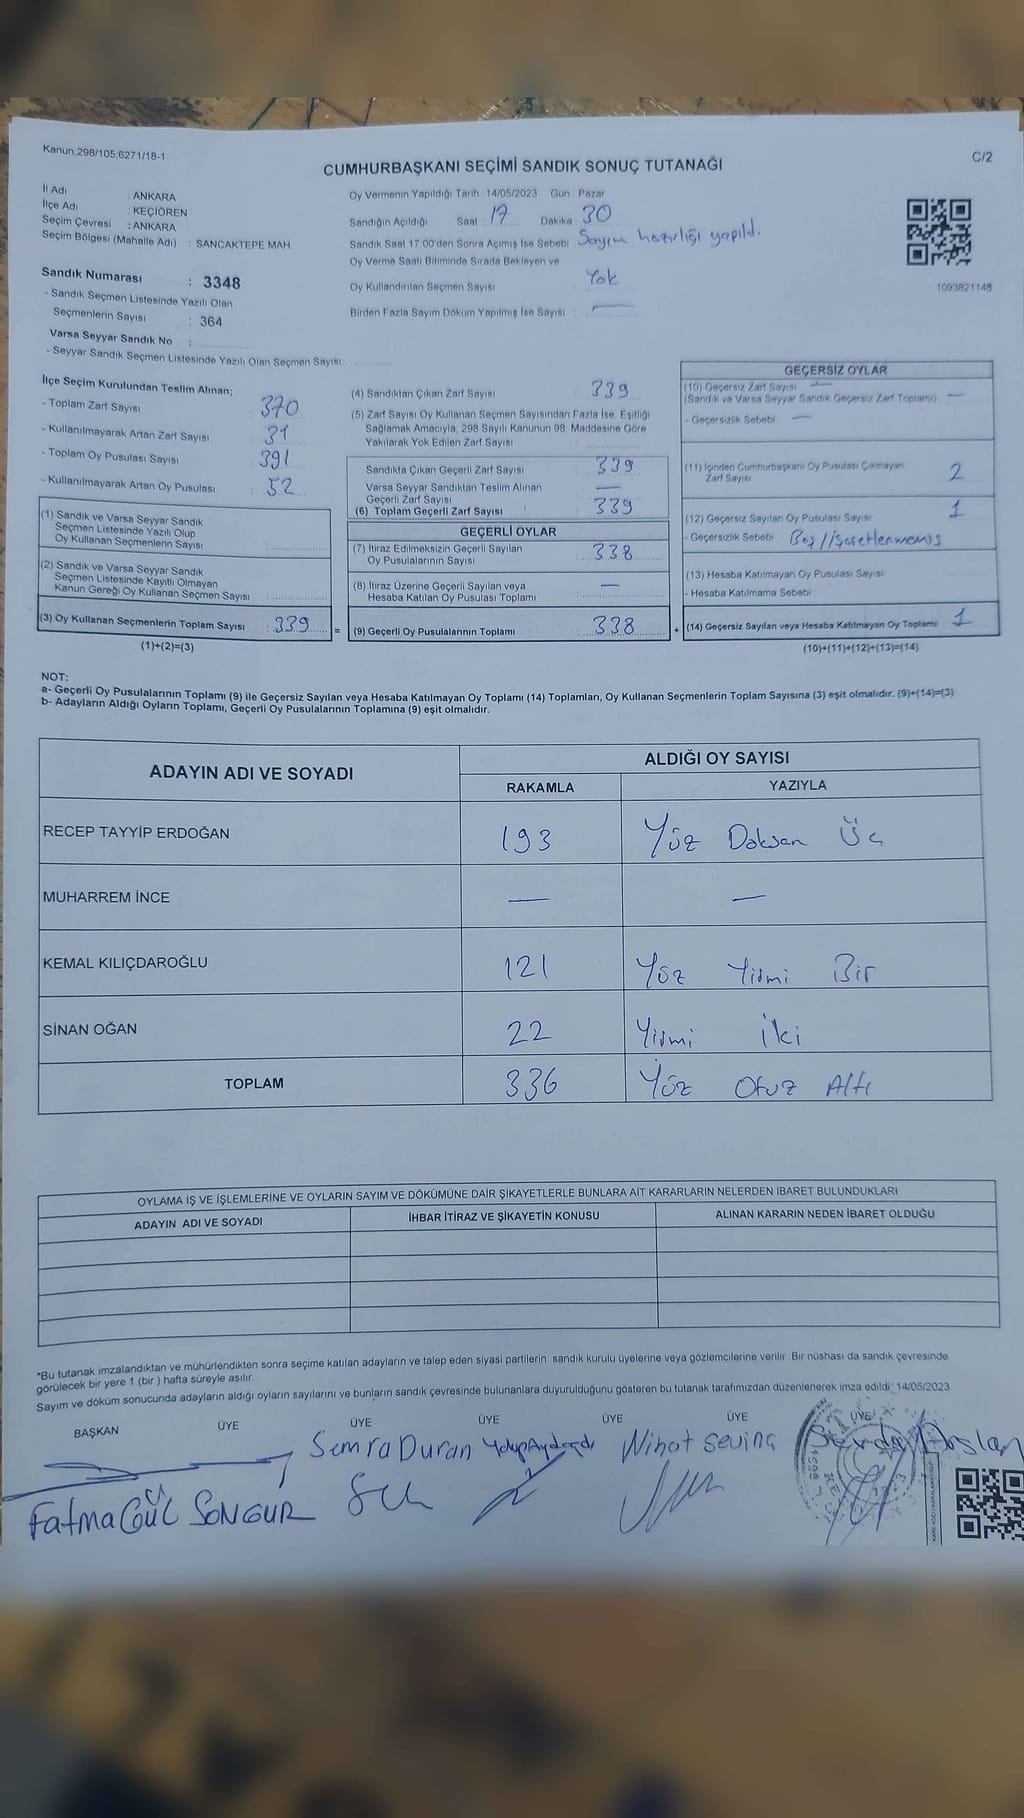 Kanun:298/105;6271/18-1
C/2
CUMHURBAŞKANI SEÇİMİ SANDIK SONUÇ TUTANAĞI
İl Adı : ANKARA
İlçe Adı : KEÇİÖREN
Seçim Çevresi : ANKARA
Seçim Bölgesi (Mahalle Adı) : SANCAKTEPE MAH.
Sandık Numarası : 3348
- Sandık Seçmen Listesinde Yazılı Olan
Seçmenlerin Sayısı : 364
Varsa Seyyar Sandık No :
- Seyyar Sandık Seçmen Listesinde Yazılı Olan Seçmen Sayısı:
Oy Vermenin Yapıldığı Tarih : 14/05/2023 Gün : Pazar
Sandığın Açıldığı Saat : 17 Dakika : 30
Sandık Saat 17:00'den Sonra Açılmış İse Sebebi : Sayım hazırlığı yapıldı.
Oy Verme Saati Bitiminde Sırada Bekleyen ve
Oy Kullandırılan Seçmen Sayısı Yok
Birden Fazla Sayım Döküm Yapılmış İse Sayısı : —
1093821148
İlçe Seçim Kurulundan Teslim Alınan;
- Toplam Zarf Sayısı : 370
- Kullanılmayarak Artan Zarf Sayısı : 31
- Toplam Oy Pusulası Sayısı : 391
- Kullanılmayarak Artan Oy Pusulası : 52
(1) Sandık ve Varsa Seyyar Sandık
Seçmen Listesinde Yazılı Olup
Oy Kullanan Seçmenlerin Sayısı :
(2) Sandık ve Varsa Seyyar Sandık
Seçmen Listesinde Kayıtlı Olmayan
Kanun Gereği Oy Kullanan Seçmen Sayısı :
(3) Oy Kullanan Seçmenlerin Toplam Sayısı : 339 =
(1)+(2)=(3)
(4) Sandıktan Çıkan Zarf Sayısı : 339
(5) Zarf Sayısı Oy Kullanan Seçmen Sayısından Fazla İse, Eşitliği
Sağlamak Amacıyla, 298 Sayılı Kanunun 98. Maddesine Göre
Yakılarak Yok Edilen Zarf Sayısı :
Sandıkta Çıkan Geçerli Zarf Sayısı : 339
Varsa Seyyar Sandıktan Teslim Alınan
Geçerli Zarf Sayısı : —
(6) Toplam Geçerli Zarf Sayısı : 339
GEÇERLİ OYLAR
(7) İtiraz Edilmeksizin Geçerli Sayılan
Oy Pusulasının Sayısı : 338
(8) İtiraz Üzerine Geçerli Sayılan veya
Hesaba Katılan Oy Pusulası Toplamı : —
(9) Geçerli Oy Pusulalarının Toplamı : 338 +
GEÇERSİZ OYLAR
(10) Geçersiz Zarf Sayısı : —
(Sandık ve Varsa Seyyar Sandık Geçersiz Zarf Toplamı) —
- Geçersizlik Sebebi : —
(11) İçinden Cumhurbaşkanı Oy Pusulası Çıkmayan
Zarf Sayısı : 2
(12) Geçersiz Sayılan Oy Pusulası Sayısı : 1
- Geçersizlik Sebebi : Boş/İşaretlenmemiş
(13) Hesaba Katılmayan Oy Pusulası Sayısı :
- Hesaba Katılmama Sebebi :
(14) Geçersiz Sayılan veya Hesaba Katılmayan Oy Toplamı : 1
(10)+(11)+(12)+(13)=(14)
NOT:
a- Geçerli Oy Pusulalarının Toplamı (9) ile Geçersiz Sayılan veya Hesaba Katılmayan Oy Toplamı (14) Toplamları, Oy Kullanan Seçmenlerin Toplam Sayısına (3) eşit olmalıdır. (9)+(14)=(3)
b- Adayların Aldığı Oyların Toplamı, Geçerli Oy Pusulalarının Toplamına (9) eşit olmalıdır.
ADAYIN ADI VE SOYADI
ALDIĞI OY SAYISI
RAKAMLA YAZIYLA
RECEP TAYYİP ERDOĞAN 193 Yüz Doksan Üç
MUHARREM İNCE — —
KEMAL KILIÇDAROĞLU 121 Yüz Yirmi Bir
SİNAN OĞAN 22 Yirmi İki
TOPLAM 336 Yüz Otuz Altı
OYLAMA İŞ VE İŞLEMLERİNE VE OYLARIN SAYIM VE DÖKÜMÜNE DAİR ŞİKAYETLERLE BUNLARA AİT KARARLARIN NELERDEN İBARET BULUNDUKLARI
ADAYIN ADI VE SOYADI İHBAR İTİRAZ VE ŞİKAYETİN KONUSU ALINAN KARARIN NEDEN İBARET OLDUĞU
*Bu tutanak imzalandıktan ve mühürlendikten sonra seçime katılan adayların ve talep eden siyasi partilerin sandık kurulu üyelerine veya gözlemcilerine verilir. Bir nüshası da sandık çevresinde
görülecek bir yere 1 (bir) hafta süreyle asılır.
Sayım ve döküm sonucunda adayların aldığı oyların sayılarını ve bunların sandık çevresinde bulunanlara duyurulduğunu gösteren bu tutanak tarafımızdan düzenlenerek imza edildi. 14/05/2023
BAŞKAN ÜYE ÜYE ÜYE ÜYE ÜYE ÜYE
Semra Duran Nihat Sevinç Serdar Arslan
Fatma Gül SONGUR